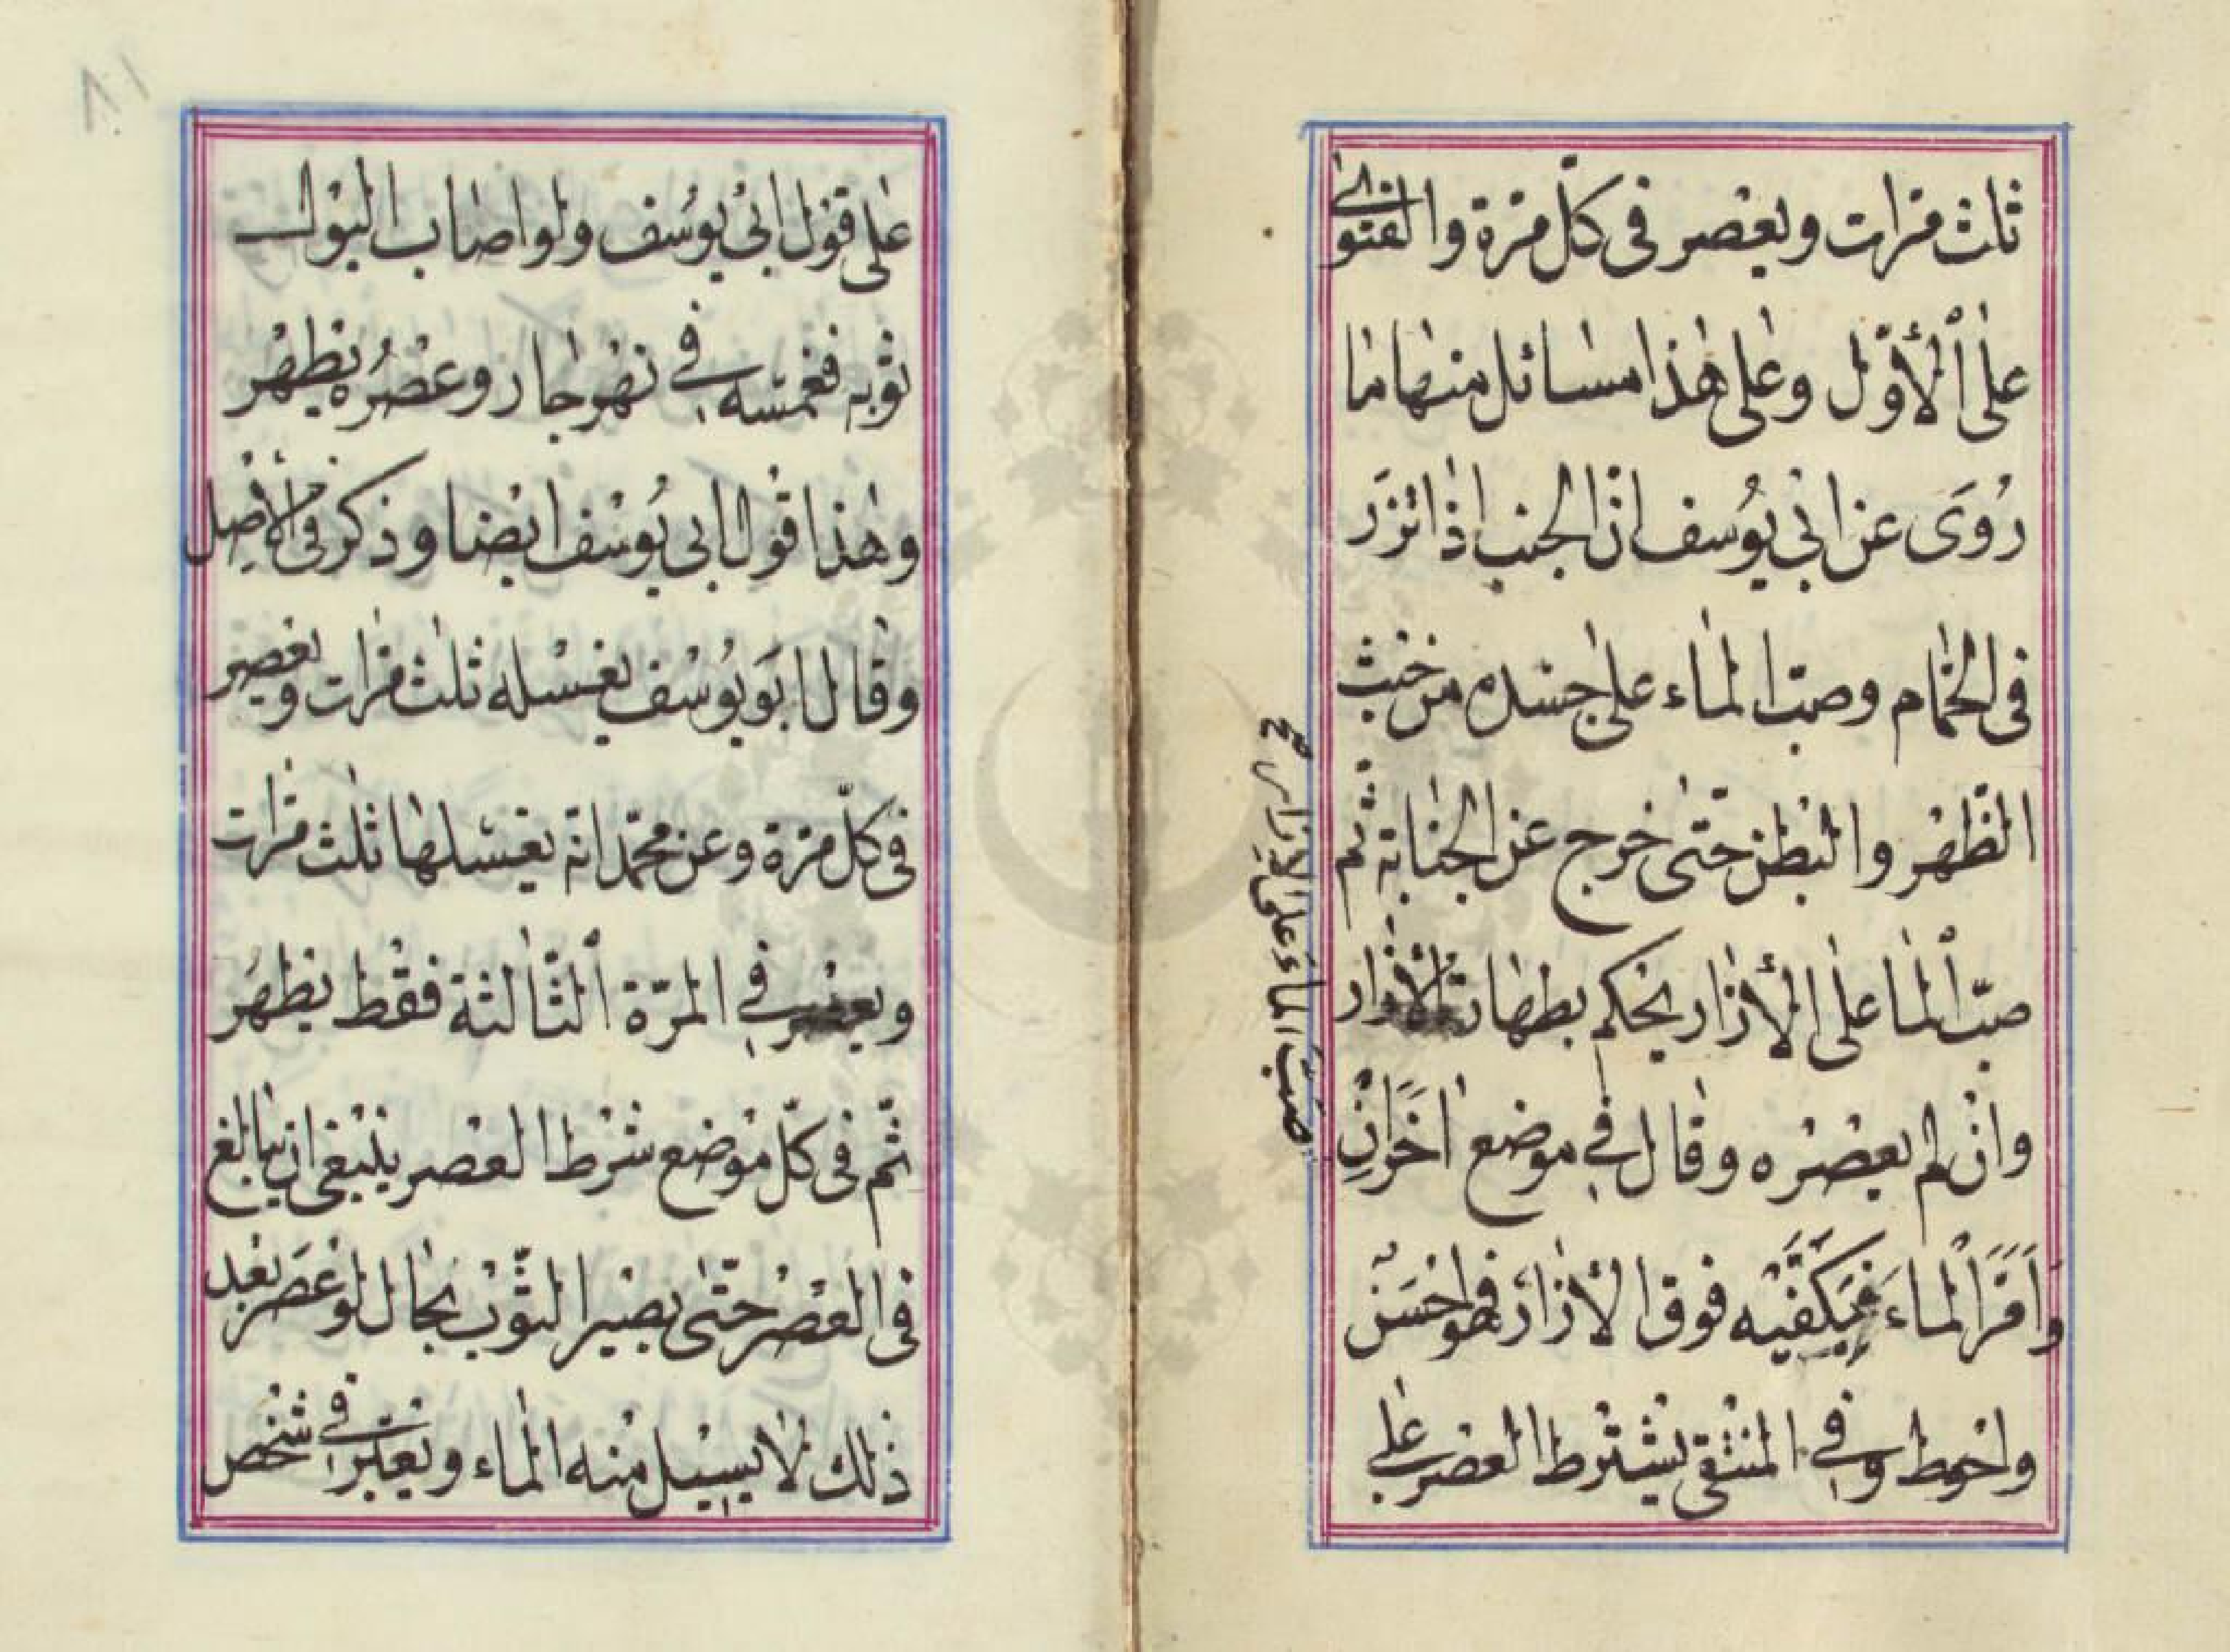 ثلث مرات ويعصر فى كلّ مرّة والفتوىٰ
علىٰ ٱلأوّل وعلىٰ هٰذا مسائل منها ما
رُوَى عن ابى يوُسف انّ الجنب اذا ائتزَر
فى الحمّام وصبّ الماء علىٰ جسده من حيث
الظّهْر والبَطْن حتّىٰ خرج عن الجنابة ثمّ
صبّ ٱلما على الأزار يحكم بطهارة الأزار
وانْ لم يعصْره وقال في موضع اٰخَرانْ
وَاَمَرَّ ٱلماءَ بِكَفَّيْه فوق الأزار فهو احْسَن
واحوط وفي المنتقى يشْترط العصْر علىٰ
صَبّ الماءَ على الاِزار صح
٨١
علىٰ قوْل ابىْ يوُسف ولو اصاب البوْل
ثوْبه فغمسه في نهْر جار وعصْره يطهْر
وهٰذا قوْل ابى يُوسْف ايْضا وذكر فى الأصْل
وقال ابَو يوُسْف يغْسله ثلٰث مرات ويعْصر
فى كلّ مرّة وعن محمّد انّه يغْسلها ثلٰث مرّات
ويعصْر في المرّة ٱلثّالثة فقْط يطهَر
ثمّ فى كلّ موْضع شرْط العصْر ينْبغى ان يبالغ
فى العصْر حتّىٰ يصيْر الثّوْب بحال لوْ عصَر بعْد
ذٰلك لا يسيْل منْه الماء ويعْتبر في شخْص